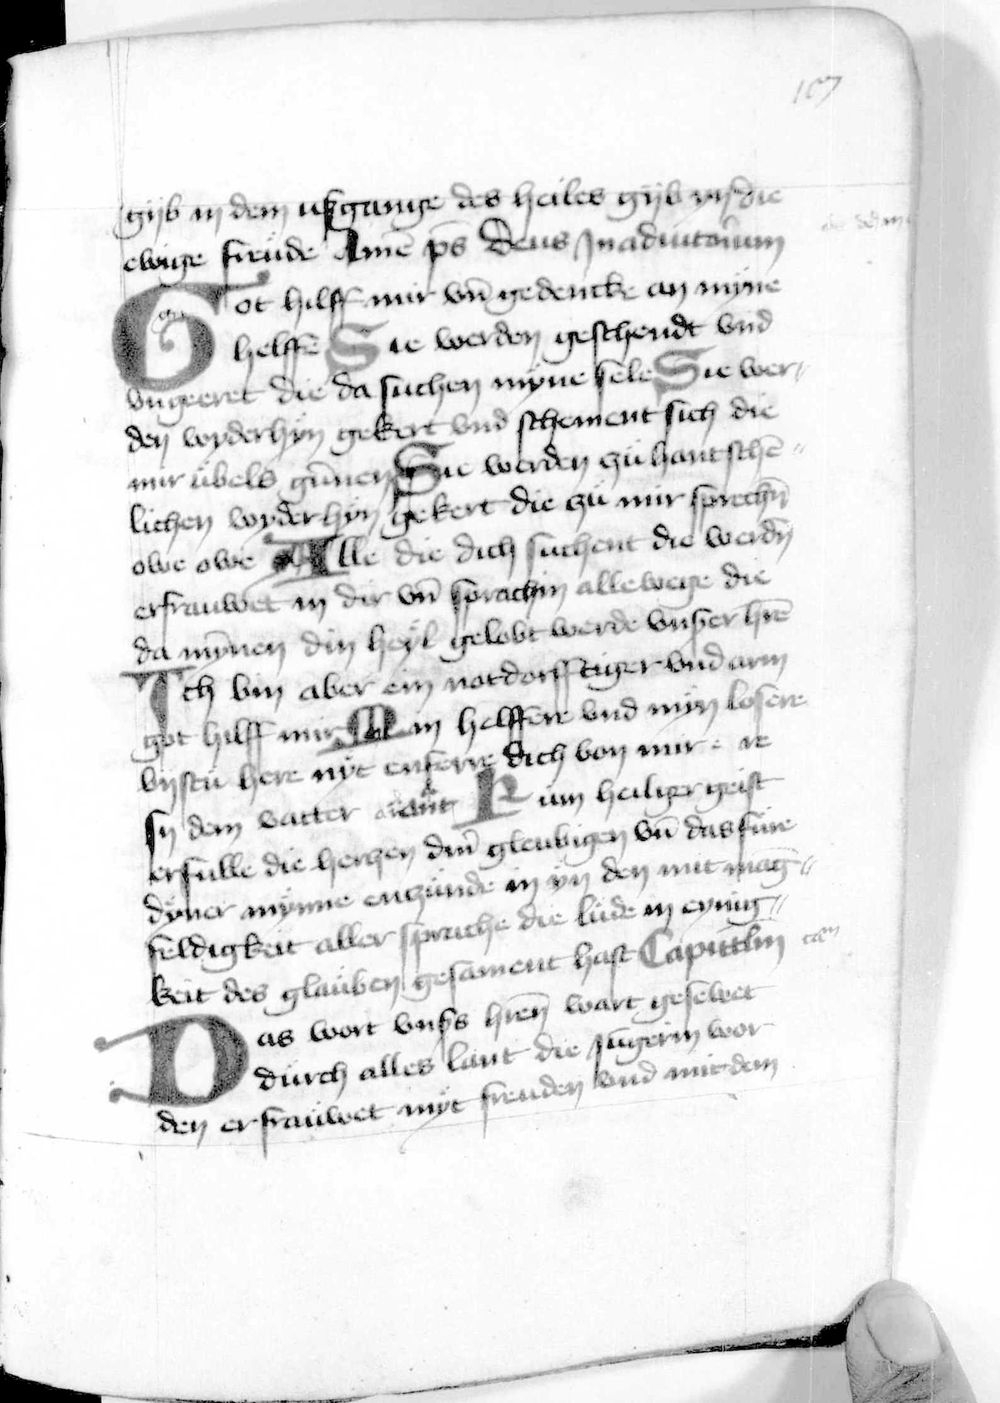 107
gijb in dem ußgange des heiles gijb uns die
ewige freude Amē ps̄ Deus In adiutoriuum
Got hilff mir vn̄ gedencke an myne
helffē Sie werden geschendt vnd
vngeeret die da suchen myne sele Sie wer-
den wyderhyn gekert vnd schement sich die
mir ubels gūnen Sie werden zü hant schē-
lichen wyderhyn gekert die zü mir sprechn̄
owe owe Alle die dich suchent die werdn̄
erfrauwet in dir vn̄ sprachin allewege die
da mȳnen din heyl gelobt werde vnser hrē
Ich bin aber ein notdorfftiger vnd arm
got hilff mir Min helffere vnd myn losere
bystü here nyt enferre dich von mir · re
sy dem vatter Kum heiliger geist
erfulle die herczen din̄ gleubigen vn̄ das füre
dyner mynne enczünde in yn den mit māg-
feldigkeit aller sprache die lüde in eynig-
keit des glauben gesament hast Capittlm
Das wort vnßs hren̄ wart gesewet
durch alles lant die Jūgerin wor
den erfrauwet myt freuden vnd mit dem